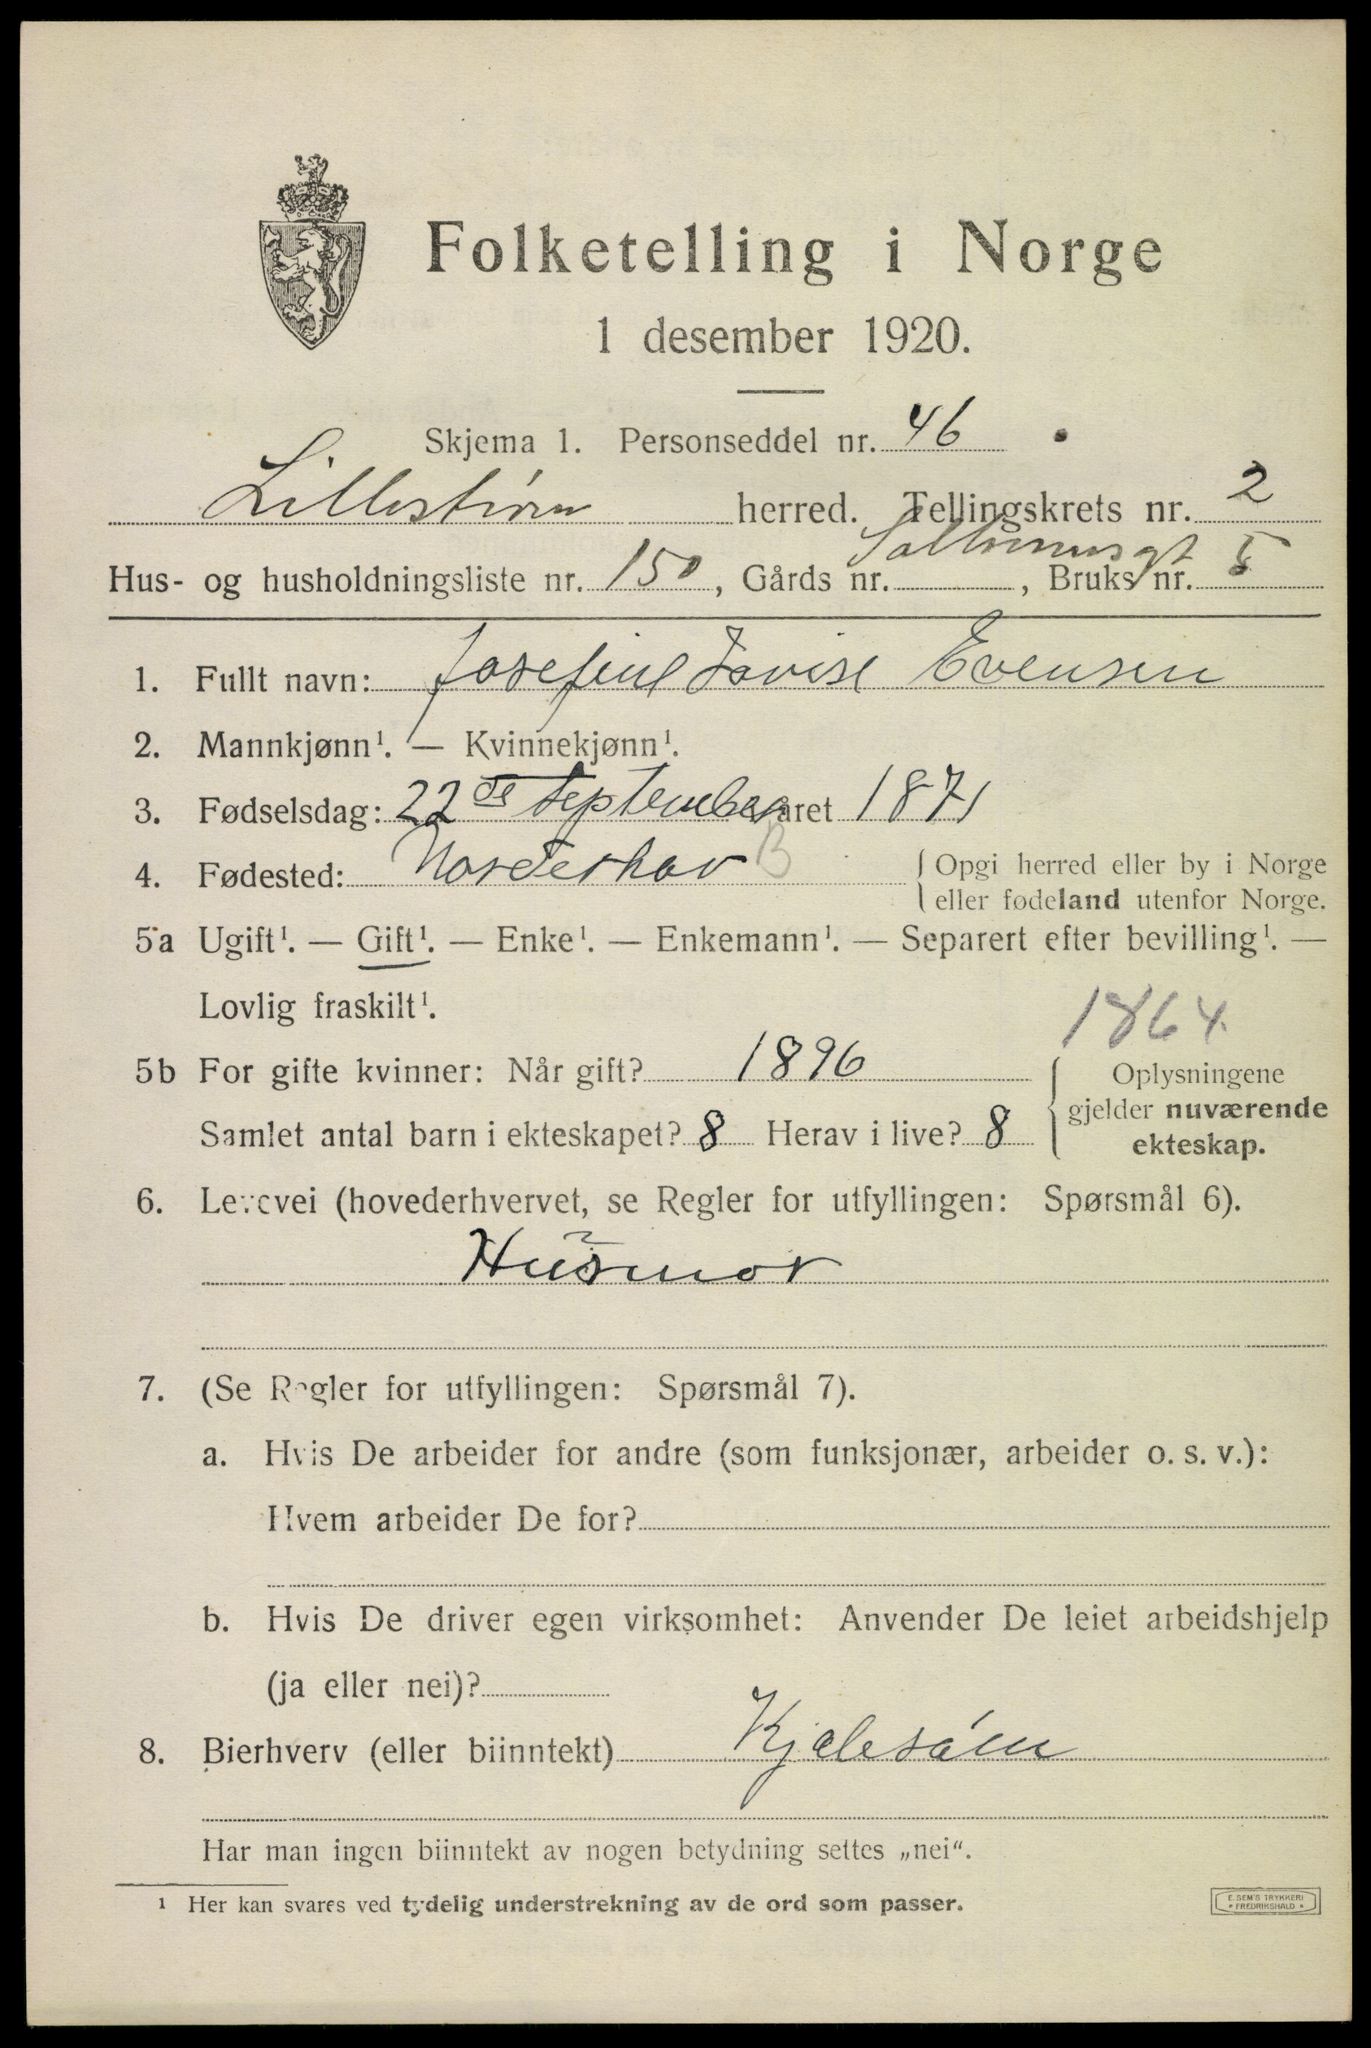 Folketelling i Norge
1 desember 1920.
Skjema 1. Personseddel nr. 46
Lillestrøm herred. Tellingskrets nr. 2
Hus- og husholdningsliste nr. 150, Gårds nr. , Bruks nr. 5
1. Fullt navn: Josefine Lovise Evensen
2. Mannkjønn¹. — Kvinnekjønn¹.
3. Fødselsdag: 22de September året 1871
4. Fødested: Norderhov B { Opgi herred eller by i Norge
eller fødeland utenfor Norge.
5a Ugift¹. — Gift¹. — Enke¹. — Enkemann¹. — Separert efter bevilling¹. —
Lovlig fraskilt¹.
1864.
5b For gifte kvinner: Når gift? 1896 { Oplysningene
gjelder nuværende
Samlet antal barn i ekteskapet? 8 Herav i live? 8
ekteskap.
6. Levevei (hovederhvervet, se Regler for utfyllingen: Spørsmål 6).
Husmor
7. (Se Regler for utfyllingen: Spørsmål 7).
a. Hvis De arbeider for andre (som funksjonær, arbeider o. s. v.):
Hvem arbeider De for?
b. Hvis De driver egen virksomhet: Anvender De leiet arbeidshjelp
(ja eller nei)?
8. Bierhverv (eller biinntekt) Kjolesøm
Har man ingen biinntekt av nogen betydning settes „nei“.
¹ Her kan svares ved tydelig understrekning av de ord som passer.
E. SEM'S TRYKKERI
* FREDRIKSHALD *